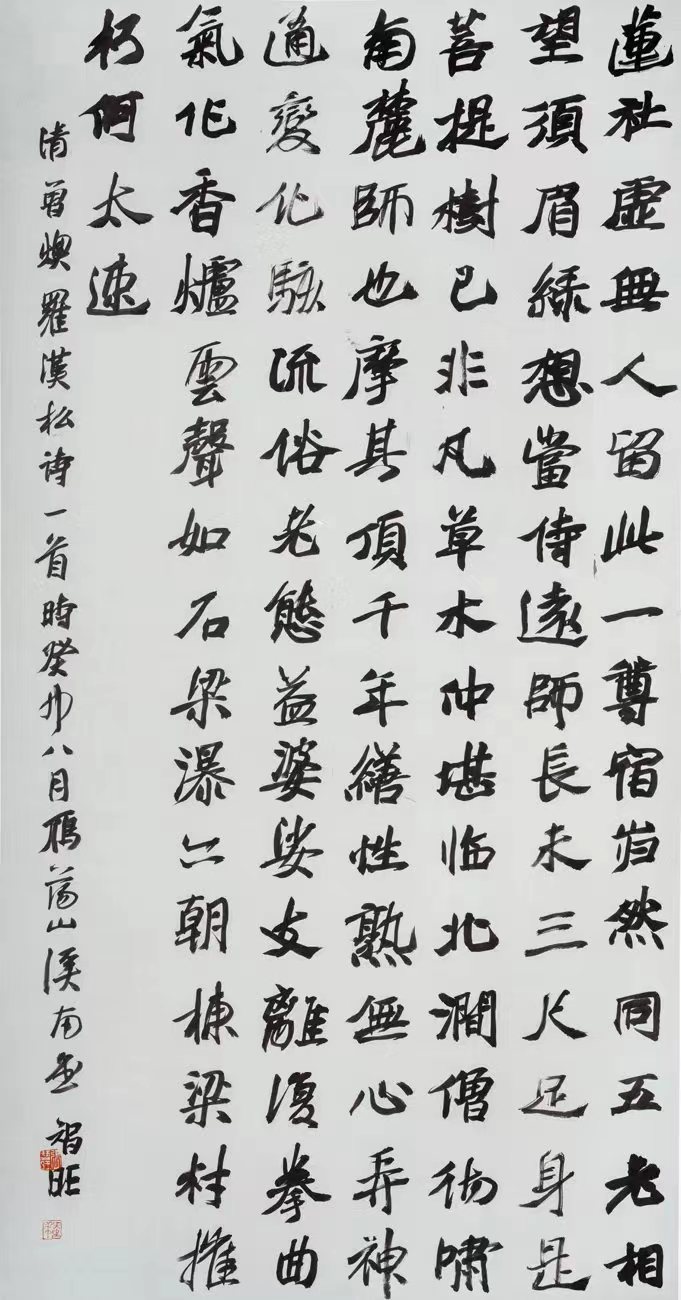 蓮社虛無人留此一尊宿岿然同五老相
望須眉綠想當侍遠師長未三尺足身是
菩提樹已非凡草木仲堪临北澗僧彻嘯
南麓師也摩其頂千年繕性熟無心弄神
通變化駭流俗老態益婆娑支離復拳曲
氣作香爐雲聲如石梁瀑六朝棟梁材摧
朽何太速
清曾燠羅漢松诗一首時癸卯八月雁蕩山溪南 智旺